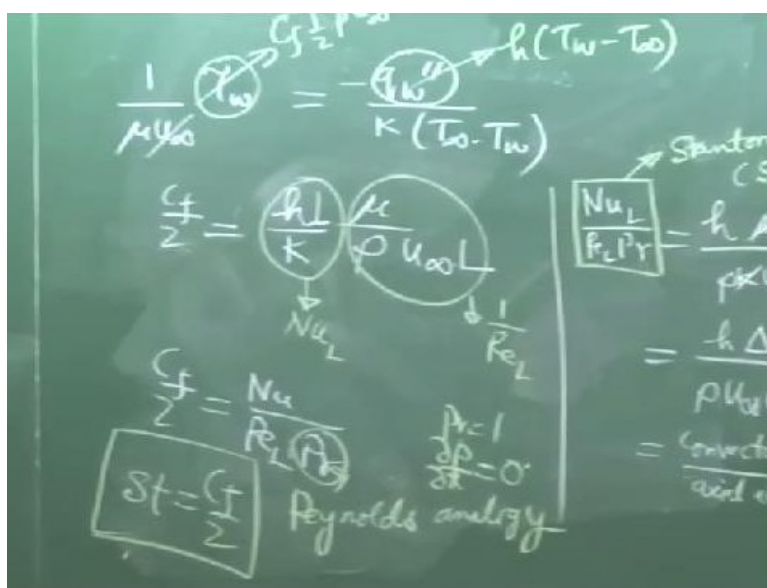 C_f 1/2 ρ
h(T_w - T_∞)
1/(μ u_∞) τ_w = -q_w''/(K (T_∞ - T_w))
C_f/2 = (hL/K) (μ/(ρ u_∞ L))
Nu_L
1/Re_L
C_f/2 = Nu/(Re_L Pr)
Pr=1
∂p/∂x = 0
St = C_f/2
Reynolds analogy
Stanton
(S
Nu_L/(Re_L Pr) = h
= h Δ
ρ u_∞
= convect
axial